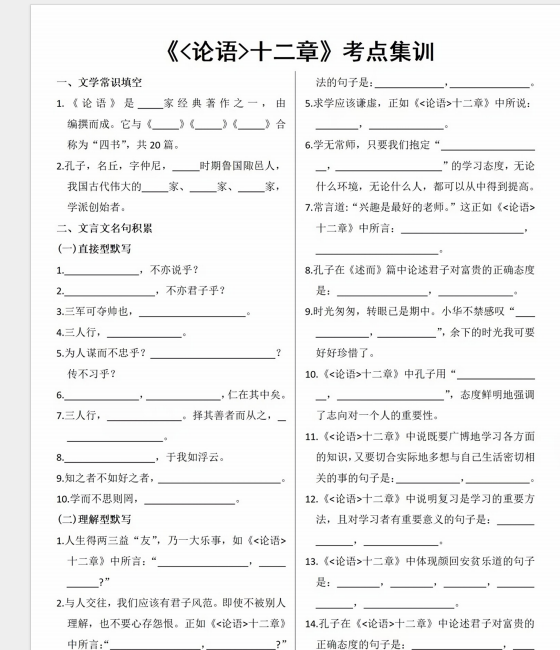 《<论语>十二章》考点集训
一、文学常识填空
1.《论语》是____家经典著作之一，由
编撰而成。它与《____》《____》《____》合
称为“四书”，共 20 篇。
2.孔子，名丘，字仲尼，____时期鲁国陬邑人，
我国古代伟大的____家、____家、____家，
学派创始者。
二、文言文名句积累
(一)直接型默写
1.____________，不亦说乎？
2.______________，不亦君子乎？
3.三军可夺帅也，________________。
4.三人行，____________。
5.为人谋而不忠乎？____________________？
传不习乎？
6.____________，____________，仁在其中矣。
7.三人行，____________。择其善者而从之，__
________________。
8.______________，于我如浮云。
9.知之者不如好之者，____________________。
10.学而不思则罔，______________。
(二)理解型默写
1.人生得两三益“友”，乃一大乐事，如《<论语>
十二章》中所言：“______________，____
_____?”
2.与人交往，我们应该有君子风范。即使不被别人
理解，也不要心存怨恨。正如《<论语>十二章》
中所言：“______________，____________?”
法的句子是：____________，____________。
5.求学应该谦虚，正如《<论语>十二章》中所说：
________，________________。
6.学无常师，只要我们抱定“________________
__，________________”的学习态度，无论
什么环境，无论什么人，都可以从中得到提高。
7.常言道：“兴趣是最好的老师。”这正如《<论语>
十二章》中所言：____________________，
____________________。
8.孔子在《述而》篇中论述君子对富贵的正确态度
是：______________，____________。
9.时光匆匆，转眼已是期中。小华不禁感叹“___
_________，____________”，余下的时光我可要
好好珍惜了。
10.《<论语>十二章》中孔子用“____________
__，__________________”，态度鲜明地强调
了志向对一个人的重要性。
11.《<论语>十二章》中说既要广博地学习各方面
的知识，又要切合实际地多想与自己生活密切相
关的事的句子是：__________，__________。
12.《<论语>十二章》中说明复习是学习的重要方
法，且对学习者有重要意义的句子是：______
______，____________。
13.《<论语>十二章》中体现颜回安贫乐道的句子
是：________，_______，_______，______
______，____________。
14.孔子在《<论语>十二章》中论述君子对富贵的
正确态度的句子是：____________，________